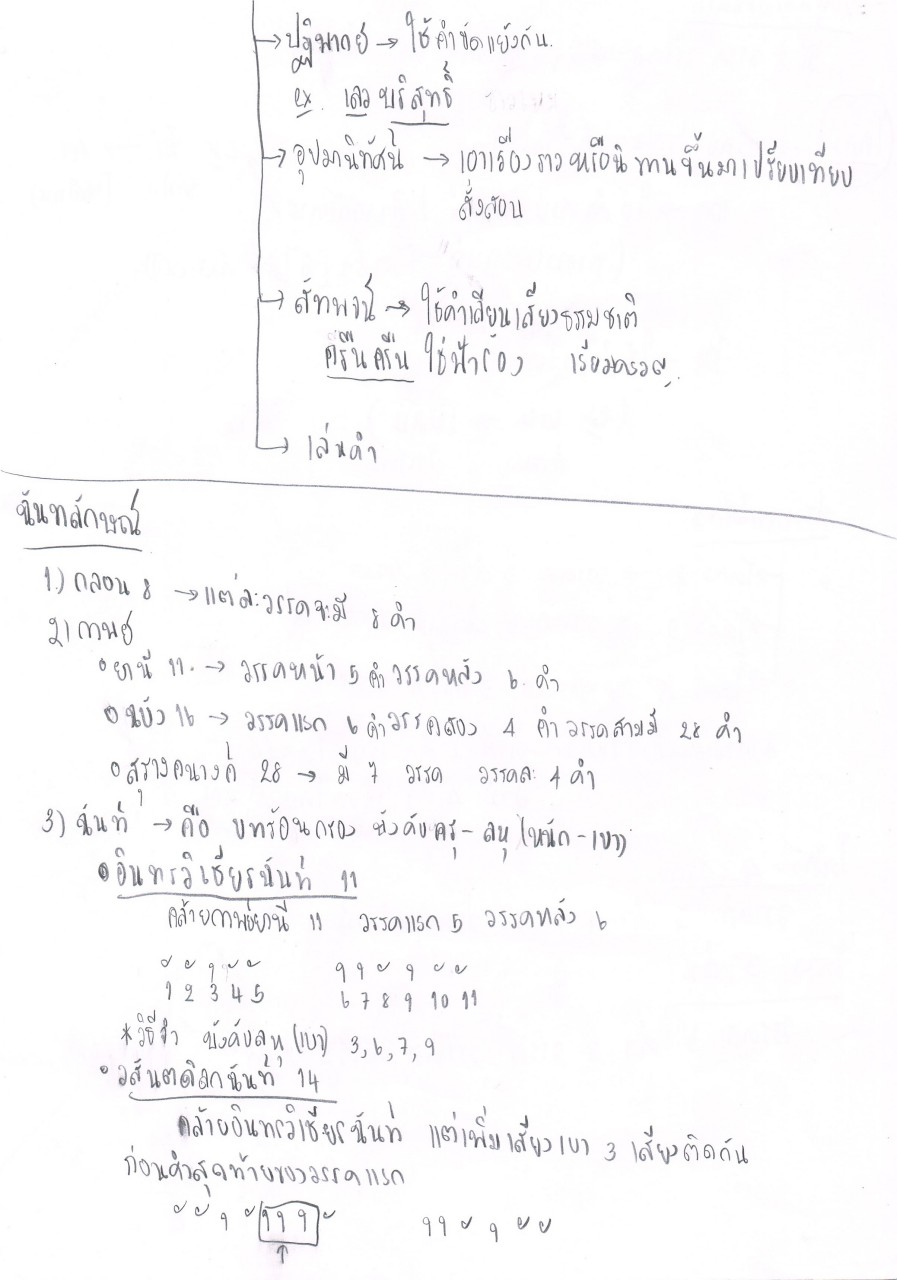 → ปฏิพากย์ → ใช้คำขัดแย้งกัน.
ex. เลวบริสุทธิ์
→ อุปมานิทัศน์ → เอาเรื่องราวหรือนิทานขึ้นมาเปรียบเทียบ
สั่งสอน
→ สัทพจน์ → ใช้คำเลียนเสียงธรรมชาติ
ครืนครืน ใช่ฟ้าร้อง เรียมครวญ.
→ เล่นคำ
ฉันทลักษณ์
1.) กลอน 8 → แต่ละวรรคจะมี 8 คำ
2) กาพย์
• ยานี 11. → วรรคหน้า 5 คำ วรรคหลัง 6 คำ
• ฉบัง 16 → วรรคแรก 6 คำ วรรคสอง 4 คำ วรรคสามมี 28 คำ
• สุรางคนางค์ 28 → มี 7 วรรค วรรคละ 4 คำ
3) ฉันท์ → คือ บทร้อยกรอง บังคับครุ - ลหุ (หนัก - เบา)
• อินทรวิเชียรฉันท์ 11
คล้ายกาพย์ยานี 11 วรรคแรก 5 วรรคหลัง 6
1 2 3 4 5 6 7 8 9 10 11
*วิธีจำ บังคับลหุ (เบา) 3, 6, 7, 9
• วสันตดิลกฉันท์ 14
คล้ายอินทรวิเชียรฉันท์ แต่เพิ่มเสียงเบา 3 เสียงติดกัน
ก่อนคำสุดท้ายของวรรคแรก